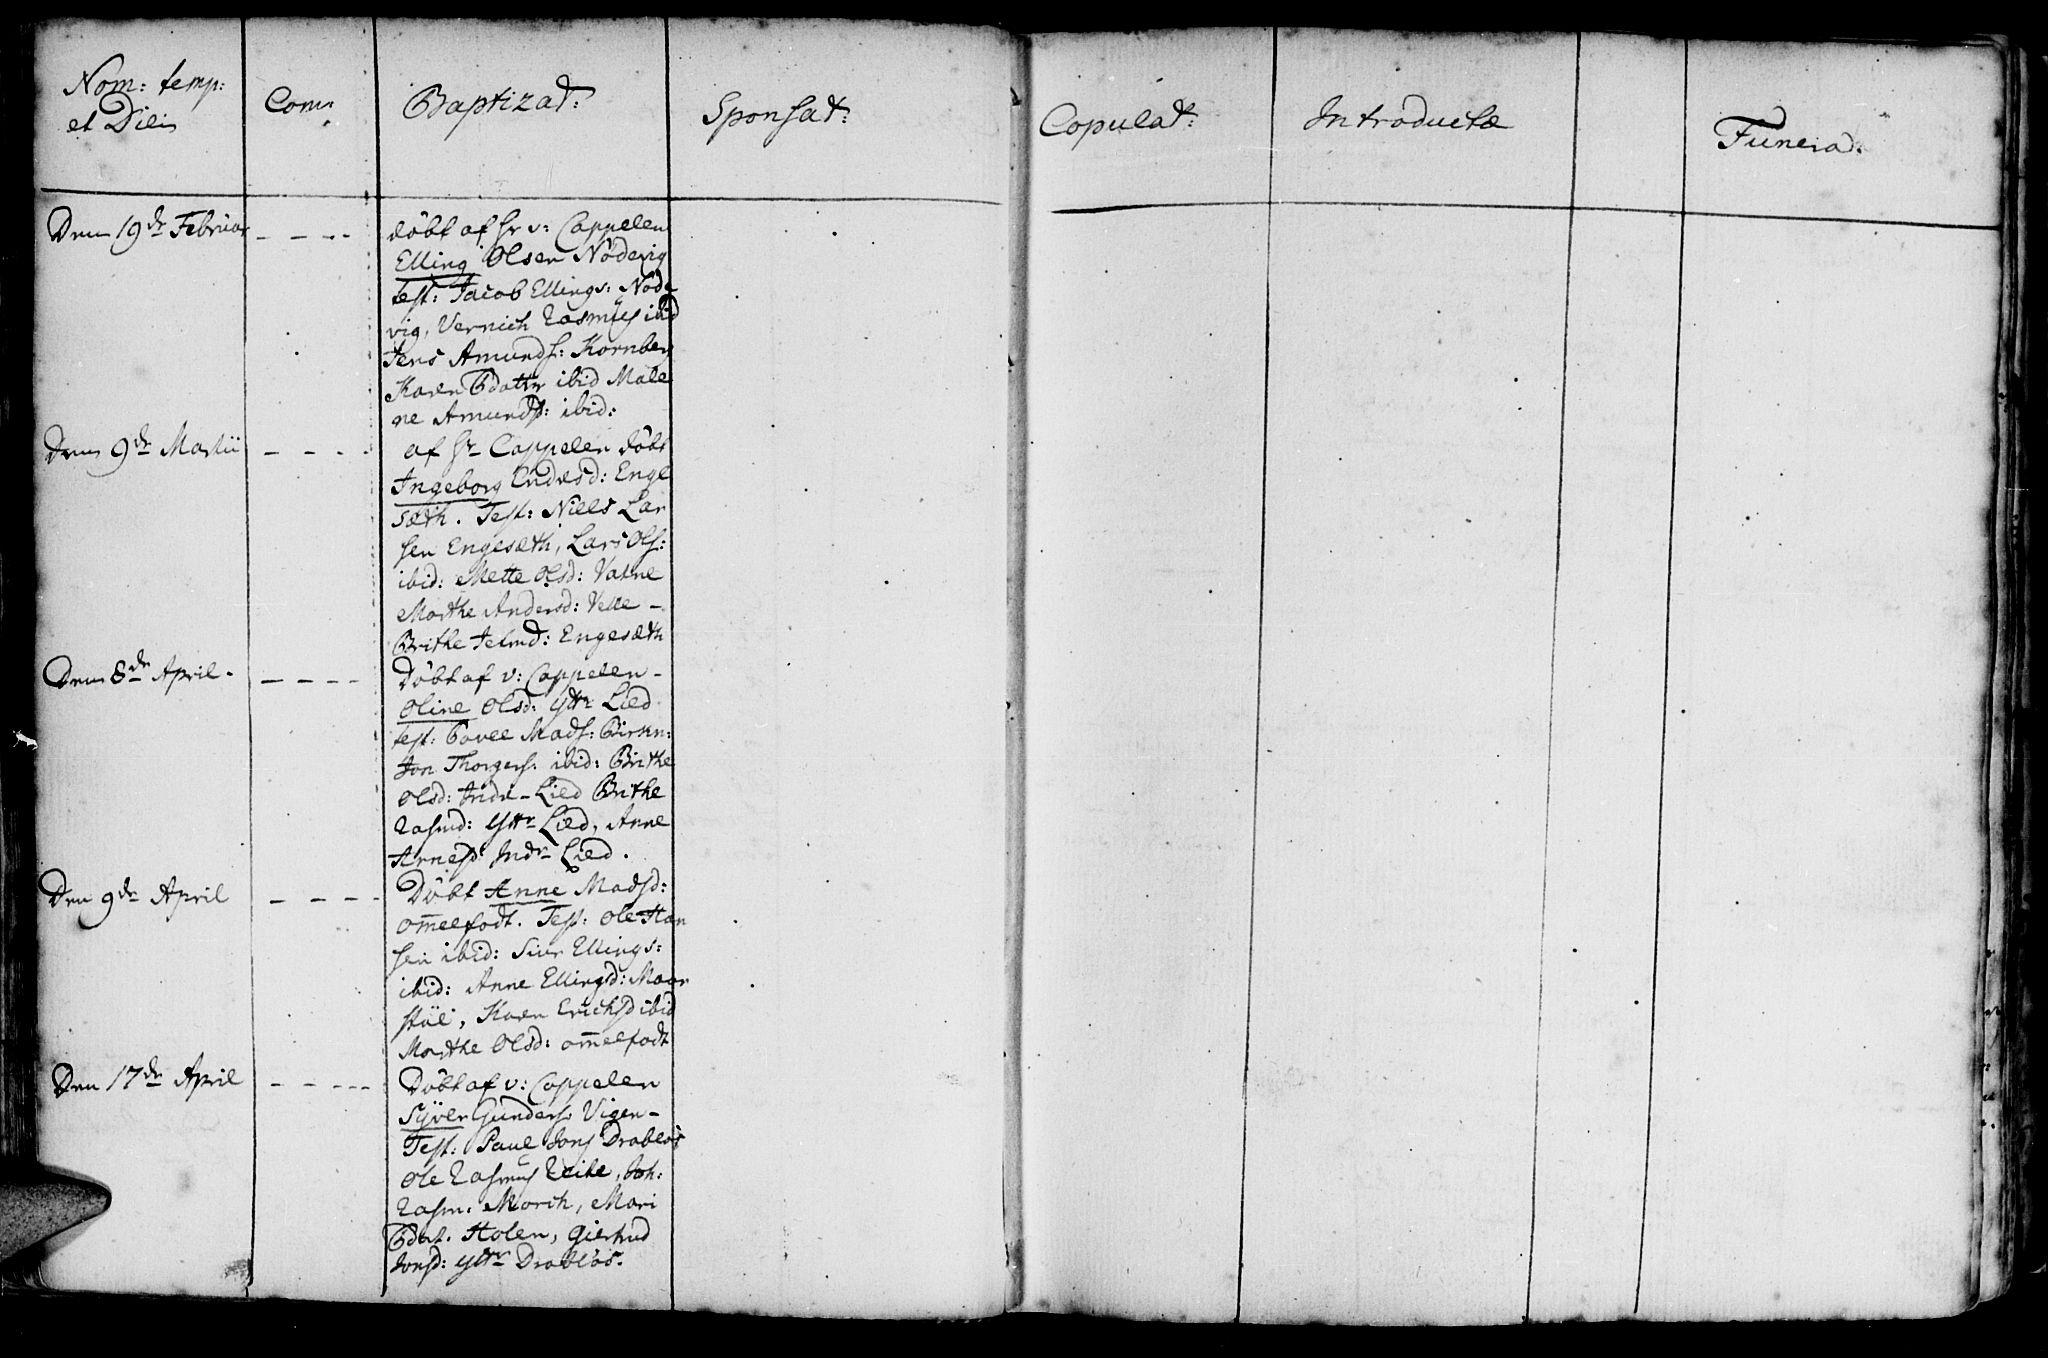 Nom: temp:
et Diei
Com:
Baptizat:
Sponsat:
Copulat:
Introductæ
Funera.
Den 19de Februar
døbt af Hr v: Cappelen
Elling Olsen Nødevig
test: Jacob Ellings: Nøde
vig, Vernich Rasmus ibid
Jens Amunds: Kornberg
Karen Bdattr ibid Male
ne Amunds: ibid:
Den 9de Martii
af Hr Cappelen døbt
Ingeborg Endresd: Enge
sæth. Test: Niels Lar
sen Engesæth, Lars Ols:
ibid: Mette Olsd: Vatne
Marthe Andersd: Velle -
Brithe Jetmd: Engesæth
Den 8de April.
Døbt af v: Cappelen -
Oline Olsd: Yttr Lied
test: Povel Mads: Birkn:
Jon Thorgers: ibid: Brithe
Olsd: Indr - Lied Brithe
Rasmd: Yttr Lied, Anne
Arnesd: Indr Lied.
Den 9de April
Døbt Anne Madsd:
Ommelfodt. Test: Ole Han
sen ibid: Siur Ellings:
ibid: Anne Ellingsd: Maar
støl, Karen Erichsd ibid
Marthe Olsd: Ommelfodt
Den 17de April
Døbt af v: Cappelen
Syver Gunders Vigen -
Test: Paul Jons Drabløs
Ole Rasmus Reite, Joh:
Rasm: March, Mari
Bdat. Holen, Giertrud
Jonsd: Yttr Drabløs.